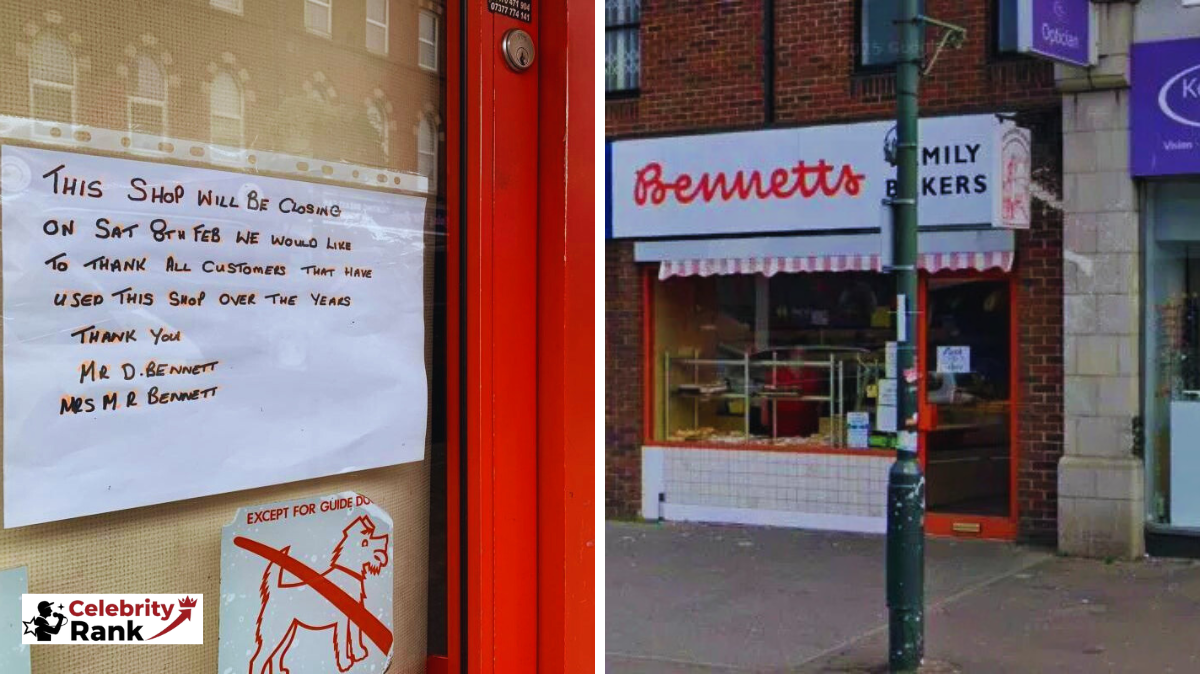 07377 774 141
THIS SHOP WILL BE CLOSING
ON SAT 8TH FEB WE WOULD LIKE
TO THANK ALL CUSTOMERS THAT HAVE
USED THIS SHOP OVER THE YEARS
THANK YOU
MR D. BENNETT
MRS M. R BENNETT
EXCEPT FOR GUIDE DO
Celebrity
Rank
Bennetts
MILY
B KERS
Optician
Ke
Vision